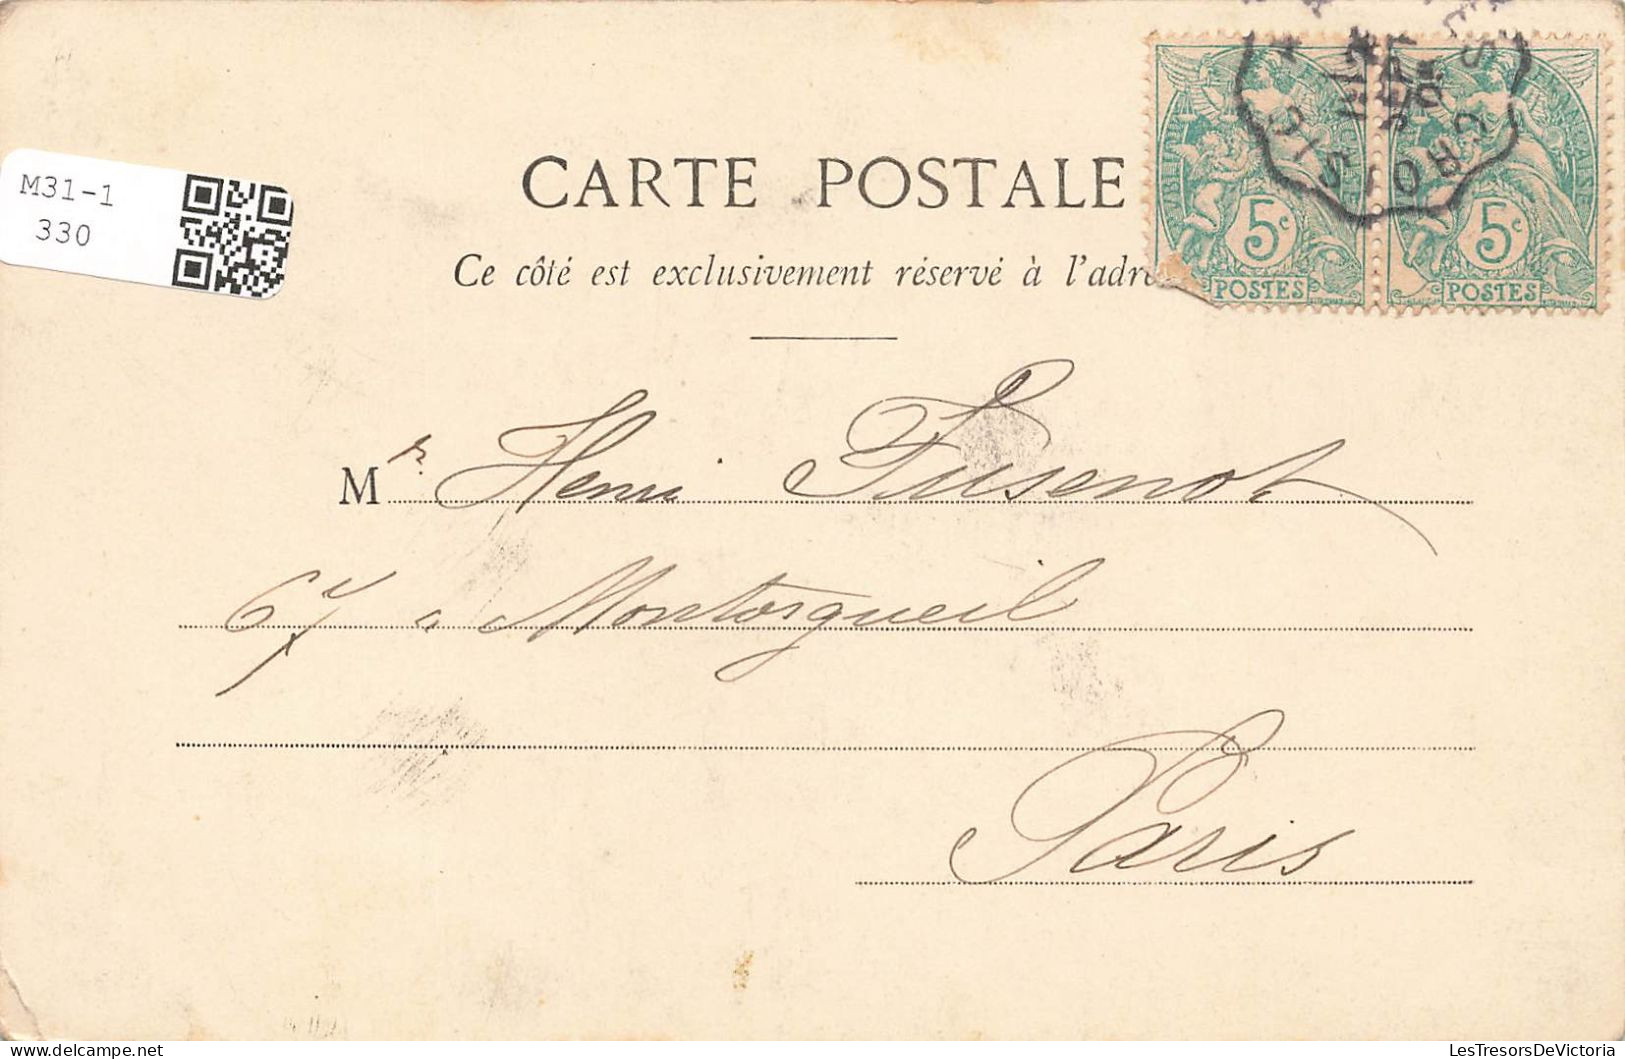 M31-1
330
CARTE POSTALE
Ce côté est exclusivement réservé à l'adre
5c
POSTES
5c
POSTES
CROIS
Mr Henri Fusenot
67 r Montorgueil
Paris
LesTresorsDeVictoria.com